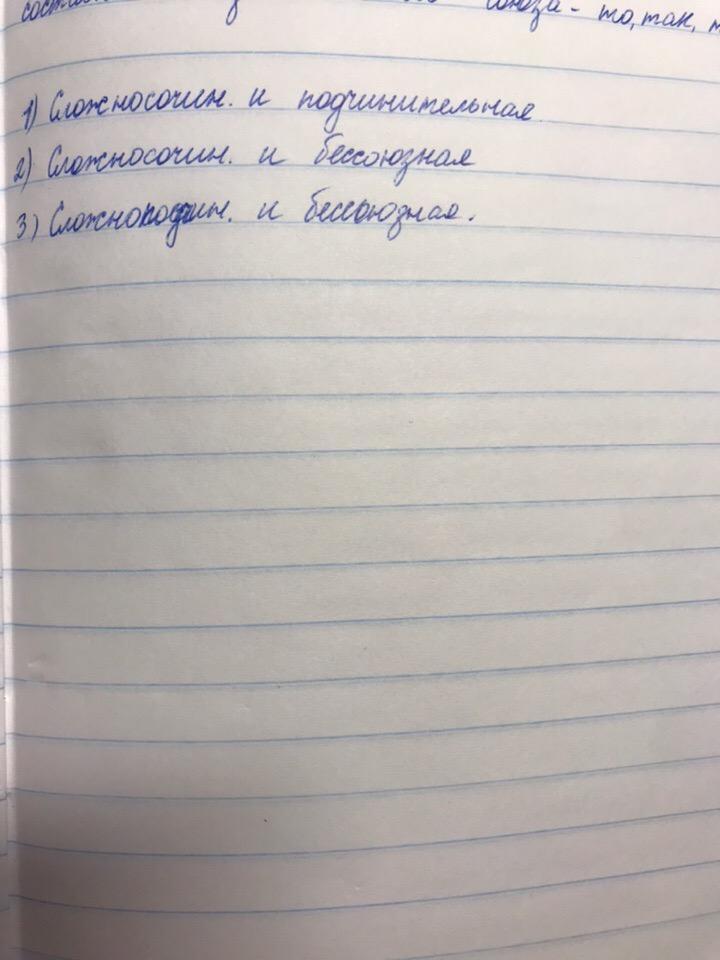 союза - то, так,
1) Сложносочин. и подчинительная
2) Сложносочин. и бессоюзная
3) Сложноподчин. и бессоюзная.